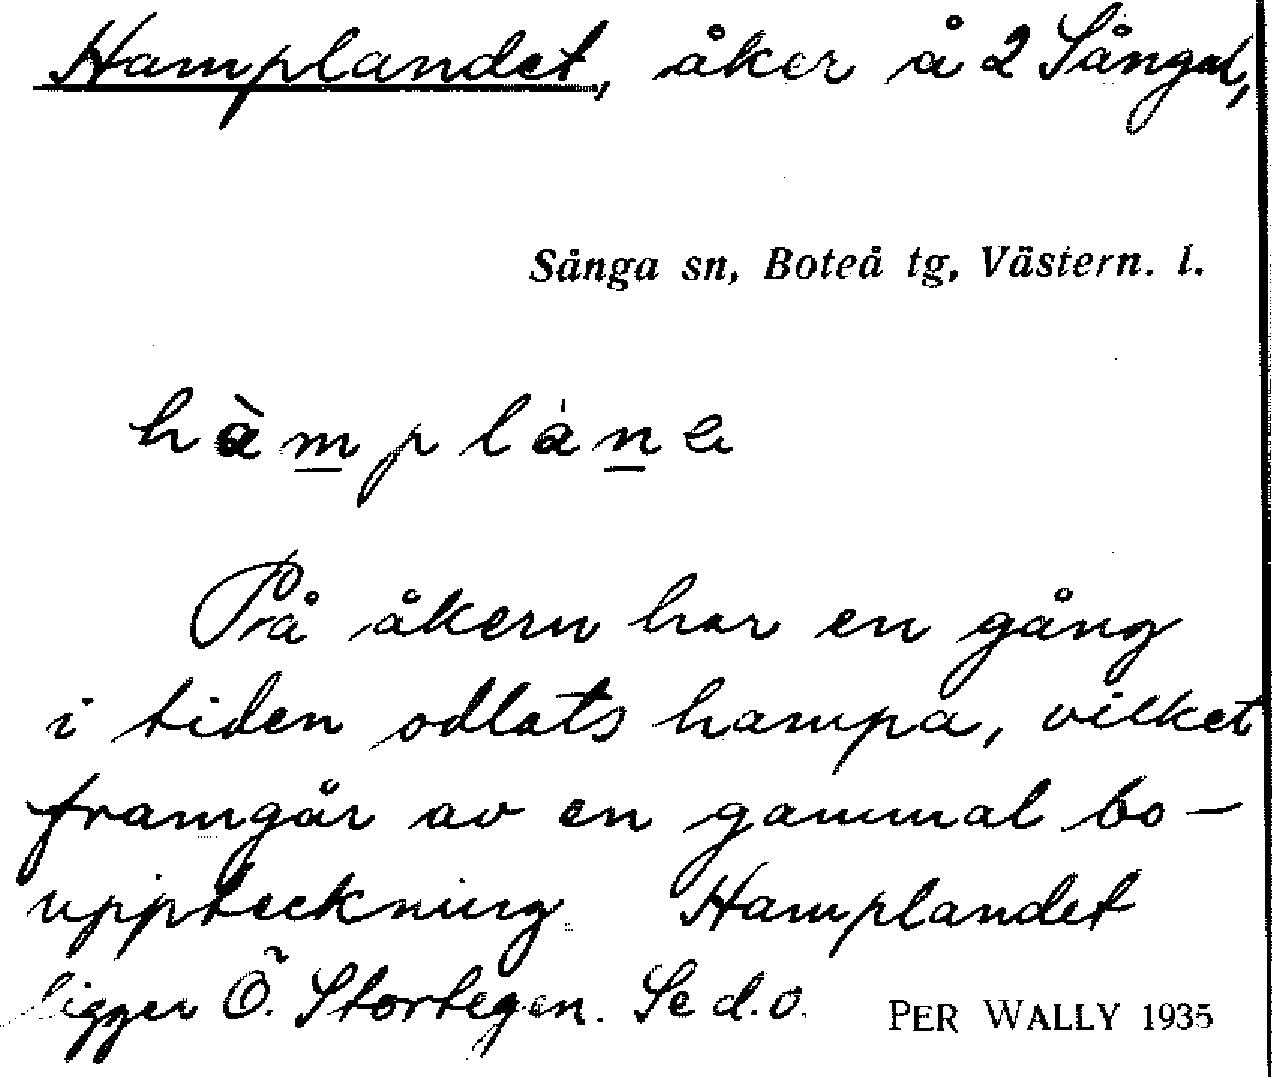 Hamplandet, åker å 2 Sångal,
Sånga sn, Boteå tg, Västern. l.
hàmpláne
På åkern har en gång
i tiden odlats hampa, vilket
framgår av en gammal bo-
uppteckning. Hamplandet
ligger Ö. Stortegen. Se d.o. PER WALLY 1935